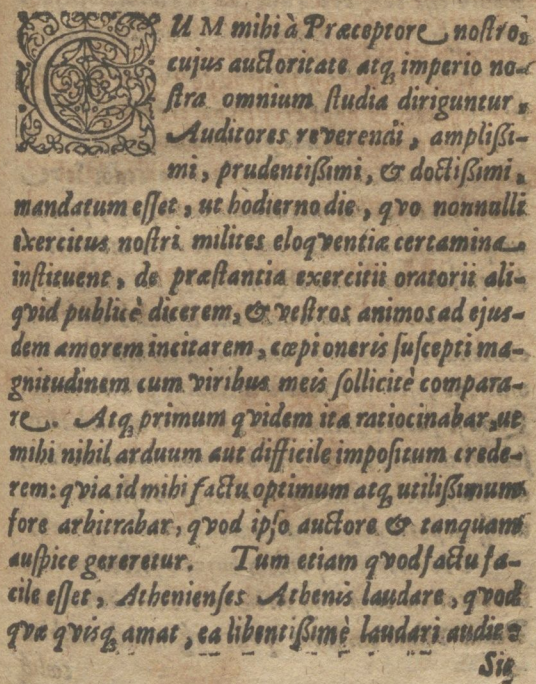 CUM mihi à Præceptore nostro,
cujus auctoritate atq; imperio no-
stra omnium studia diriguntur,
Auditores reverendi, amplißi-
mi, prudentißimi, & doctißimi,
mandatum esset, ut hodierno die, qvo nonnulli
exercitus nostri milites eloqventiæ certamina
instituent, de præstantia exercitii oratorii ali-
qvid publicè dicerem, & vestros animos ad ejus-
dem amorem incitarem, cœpi oneris suscepti ma-
gnitudinem cum viribus meis sollicitè compara-
re. Atq; primum qvidem ita ratiocinabar, ut
mihi nihil arduum aut difficile impositum crede-
rem: qvia id mihi factu optimum atq; utilißimum
fore arbitrabar, qvod ipso auctore & tanquam
auspice gereretur. Tum etiam qvod factu fa-
cile esset, Athenienses Athenis laudare, qvod
qvæ qvisq; amat, ea libentißimè laudari audie-
Sit